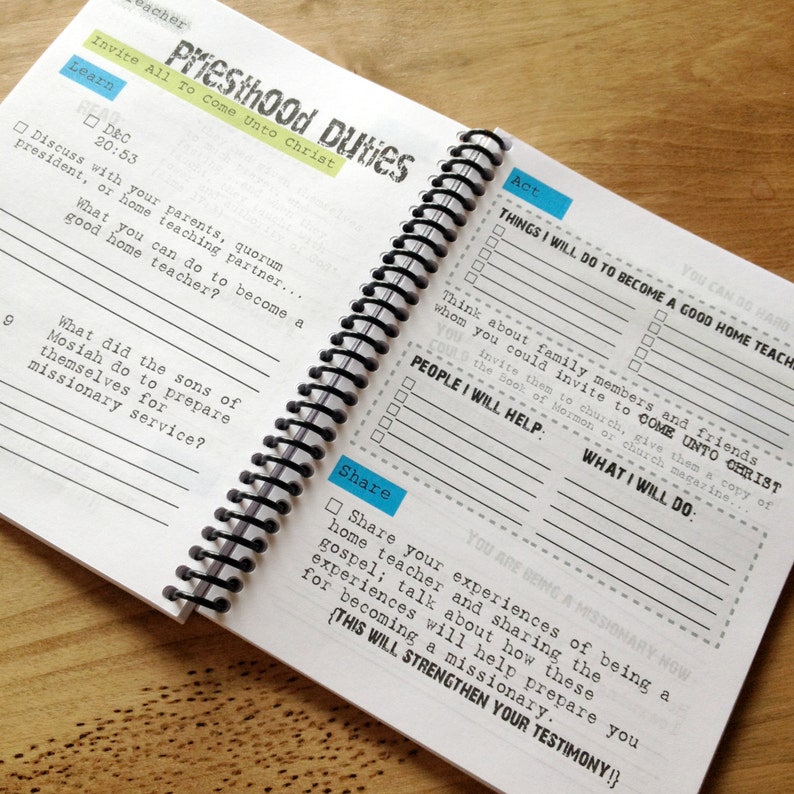 Teacher
Priesthood Duties
Invite All To Come Unto Christ
Learn
READ
D&C
20:53
Discuss with your parents, quorum
president, or home teaching partner...
What you can do to become a
good home teacher?
9
What did the sons of
Mosiah do to prepare
themselves for
missionary service?
Act
THINGS I WILL DO TO BECOME A GOOD HOME TEACH
YOU CAN DO HARD
Think about family members and friends
whom you could invite to COME UNTO CHRIST
YOU COULD
invite them to church, give them a copy of
the Book of Mormon or church magazine...
PEOPLE I WILL HELP:
WHAT I WILL DO:
YOU ARE BEING A MISSIONARY NOW
Share
Share your experiences of being a
home teacher and sharing the
gospel; talk about how these
experiences will help prepare you
for becoming a missionary.
{THIS WILL STRENGTHEN YOUR TESTIMONY!}